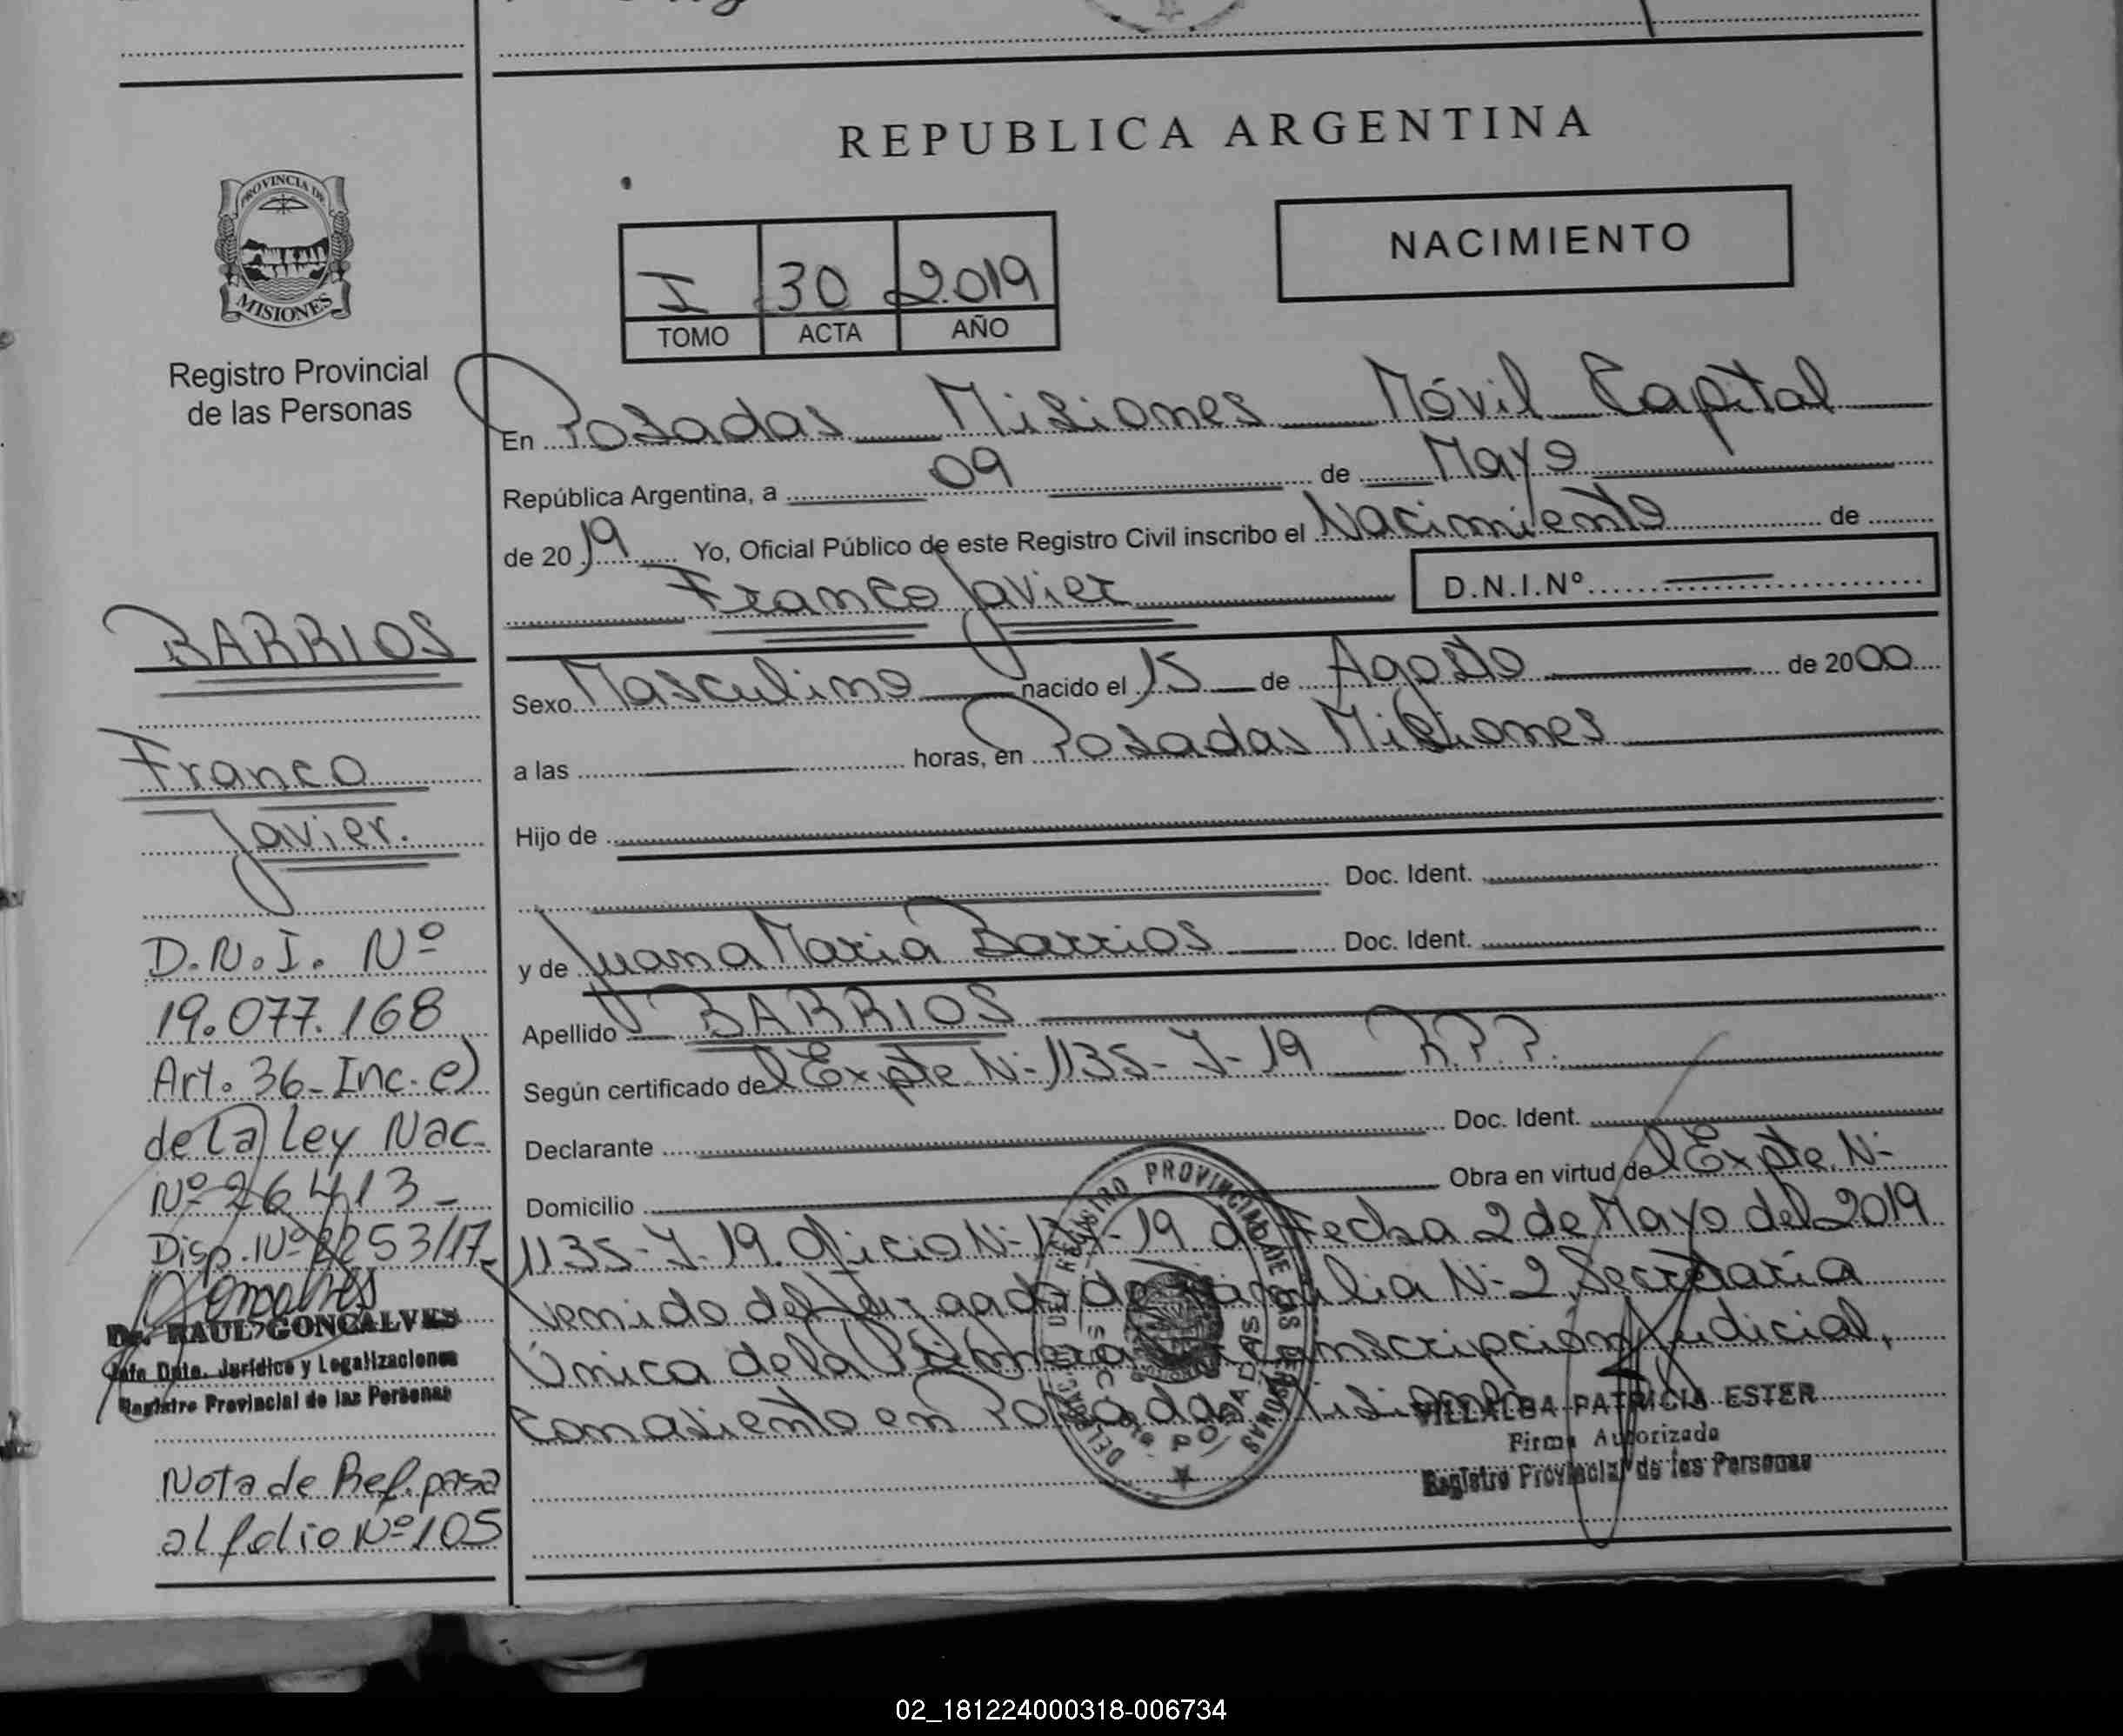 REPUBLICA ARGENTINA
PROVINCIA DE
MISIONES
Registro Provincial
de las Personas
I 30 2019
TOMO ACTA AÑO
NACIMIENTO
En Posadas Misiones Móvil Capital
República Argentina, a 09 de Mayo
de 2019 Yo, Oficial Público de este Registro Civil inscribo el Nacimiento de
Franco Javier D.N.I.Nº
Sexo Masculino nacido el 15 de Agosto de 2000
a las horas, en Posadas Misiones
Hijo de
Doc. Ident.
y de Juana Maria Barrios Doc. Ident.
Apellido BARRIOS
Según certificado del Expte N- 1135-Y-19 R.P.P.
Declarante Doc. Ident.
Domicilio Obra en virtud del Expte. N-
1135-Y-19. Oficio N- -19 de Fecha 2 de Mayo del 2019
venido del Juzgado de Familia N-2, Secretaria
Única de la Primera Circunscripción Judicial,
con asiento en Posadas Misiones
VILLALBA PATRICIA ESTER
Firma Autorizada
Registro Provincial de las Personas
BARRIOS
Franco
Javier.
D.N.I. Nº
19.077.168
Art. 36-Inc. e)
de la Ley Nac.
Nº 26413-
Disp. Nº 2253/17
Dr. RAUL GONCALVES
Jefe Dpto. Jurídico y Legalizaciones
Registro Provincial de las Personas
Nota de Ref. pasa
al folio Nº 105
02_181224000318-006734